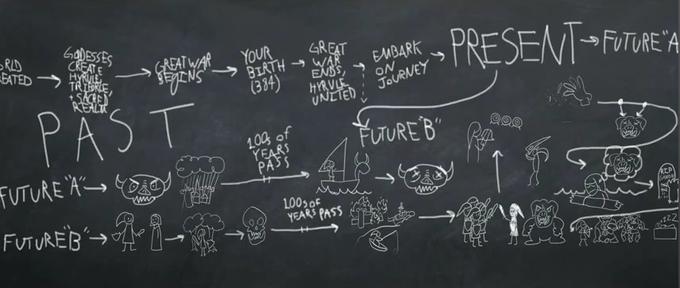 ORLD
CREATED
GODESSES
CREATE
HYRULE,
TRIFORCE,
+ SACRED
REALM
GREAT WAR
BEGINS
YOUR
BIRTH
(384)
GREAT
WAR
ENDS,
HYRULE
UNITED
EMBARK
ON
JOURNEY
PRESENT
FUTURE "A
PAST
FUTURE "B"
100s OF
YEARS
PASS
FUTURE "A"
100s OF
YEARS PASS
FUTURE "B"
RIP
ZZZ